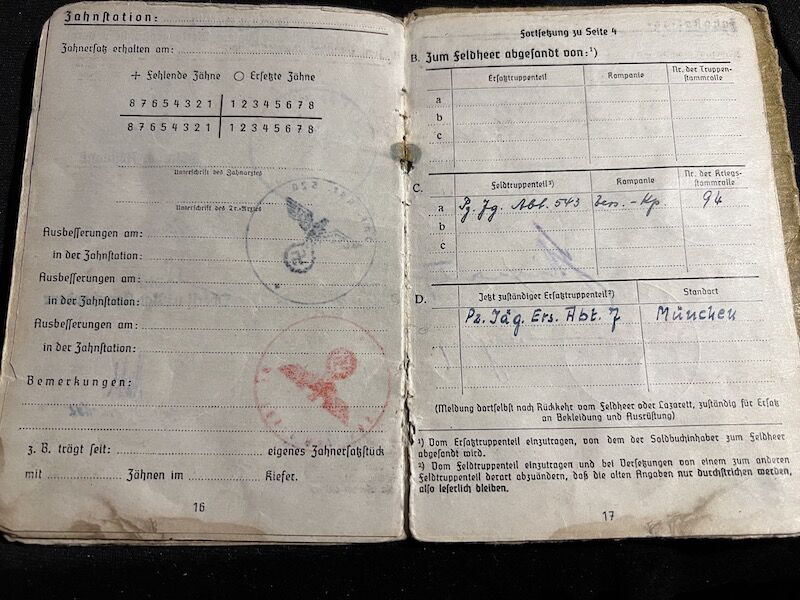 Zahnstation:
Zahnersatz erhalten am:
+ Fehlende Zähne ○ Ersetzte Zähne
8 7 6 5 4 3 2 1 1 2 3 4 5 6 7 8
8 7 6 5 4 3 2 1 1 2 3 4 5 6 7 8
Unterschrift des Zahnarztes
Unterschrift des Tr.-Arztes
Ausbesserungen am:
in der Zahnstation:
Ausbesserungen am:
in der Zahnstation:
Ausbesserungen am:
in der Zahnstation:
Bemerkungen:
z. B. trägt seit: eigenes Zahnersatzstück
mit Zähnen im Kiefer.
16
Fortsetzung zu Seite 4
B. Zum Feldheer abgesandt von:¹)
Ersatztruppenteil Kompanie Nr. der Truppen-
stammrolle
a
b
c
C. Feldtruppenteil²) Kompanie Nr. der Kriegs-
stammrolle
a Pz. Jg. Abt. 543 94
b
c
D. Jetzt zuständiger Ersatztruppenteil²) Standort
Pz. Jäg. Ers. Abt. 7 München
(Meldung dortselbst nach Rückkehr vom Feldheer oder Lazarett, zuständig für Ersatz
an Bekleidung und Ausrüstung)
¹) Vom Ersatztruppenteil einzutragen, von dem der Soldbuchinhaber zum Feldheer
abgesandt wird.
²) Vom Feldtruppenteil einzutragen und bei Versetzungen von einem zum anderen
Feldtruppenteil derart abzuändern, daß die alten Angaben nur durchstrichen werden,
also leserlich bleiben.
17